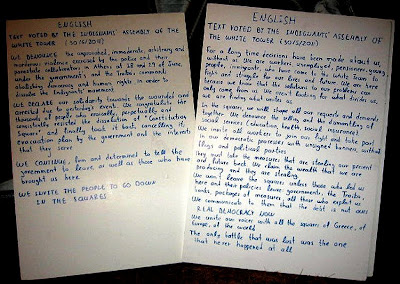 ENGLISH
TEXT VOTED BY THE INDIGNANTS' ASSEMBLY OF
THE WHITE TOWER (30/5/2011)
WE DENOUNCE the unprovoked, immoderate, arbitrary and
murderous violence exercised by the police and their
parastate collaborators in Athens at 28 and 29 of June,
under the government's and the Troika's commands
abolishing democracy and human rights in order to
dissolve the Indignants' movement.
WE DECLARE our solidarity towards the wounded and
arrested due to yesterday's events. We congratulate the
thousands of people who reasonably, perpetually and
consistently resisted the dissolution of "Constitution
Square" and finally took it back, cancelling the
evacuation plan by the government and the interests
that they serve
WE CONTINUE, firm and determined to tell the
government to leave as well as those who have
brought us here
WE INVITE THE PEOPLE TO GO DOWN
IN THE SQUARES
ENGLISH
TEXT VOTED BY THE INDIGNANTS' ASSEMBLY OF
THE WHITE TOWER (30/5/2011)
For a long time decisions have been made about us,
without us. We are workers, unemployed, pensioners, young
people, immigrants, who have come to the White Tower to
fight and struggle for our lives and future. We are here
because we know that the solutions to our problems can
only come from us. We aren't looking for what divides us,
we are finding what unites us
In the squares, we'll shape all our requests and demands
together. We denounce the selling and the dismantling of
social services (education, health, social insurance)
We invite all workers to join our fight and take part
in our democratic processes with unsigned banners, without
flags and political parties
They must take the measures that are stealing our present
and future back. We claim the wealth that we are
producing and they are stealing
We won't leave the squares unless those who led us
here and their policies leave: governments, the Troika,
banks, packages of measures, all those who exploit us.
We communicate to them that the debt is not ours
REAL DEMOCRACY NOW
We unite our voices with all the squares of Greece, of
Europe, of the world
The only battle that was lost was the one
that never happened at all